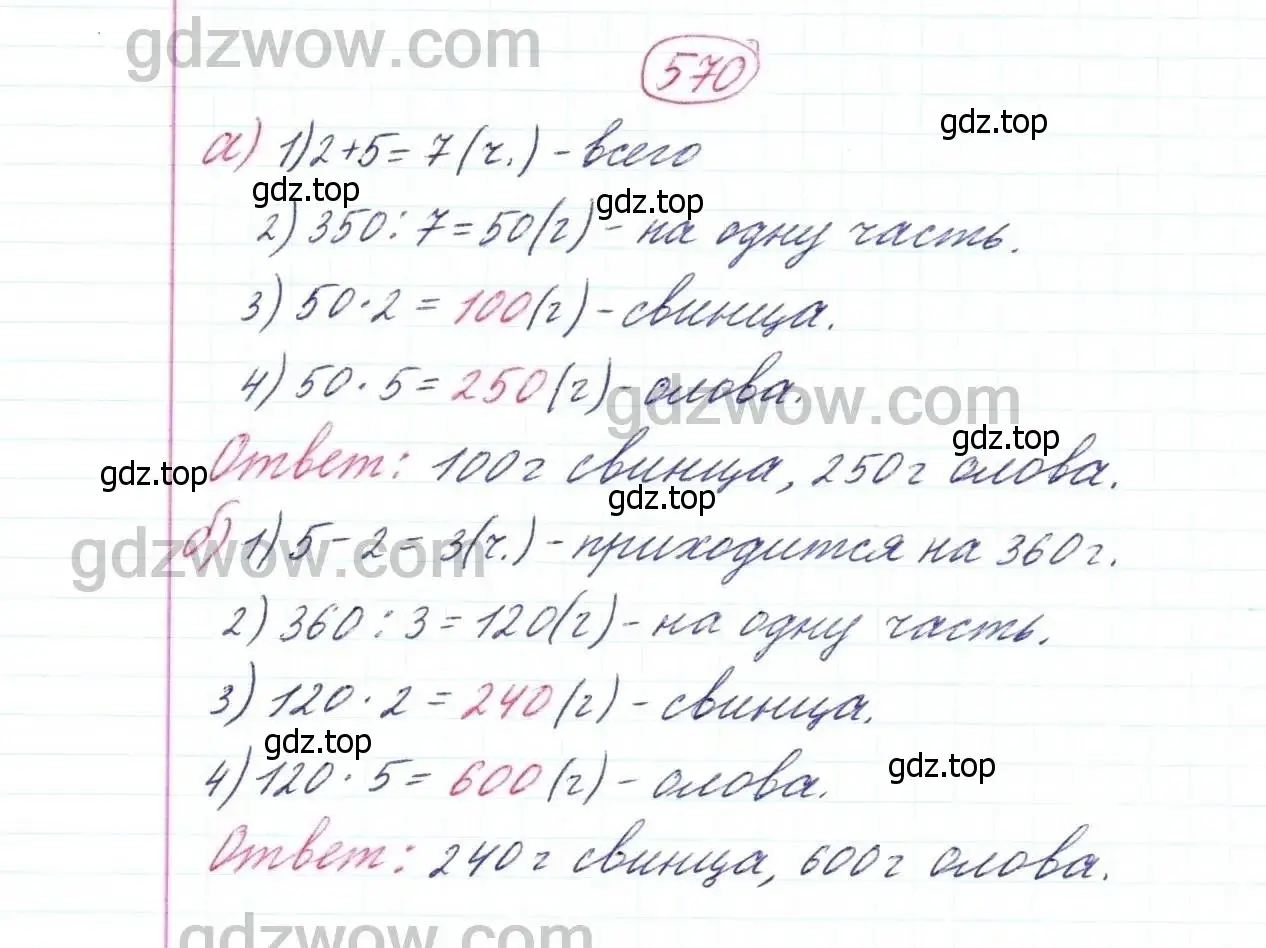 gdzwow.com
570
gdz.top
а) 1) 2+5=7 (ч.) - всего
gdz.top
gdz.top
2) 350:7=50 (г) - на одну часть.
3) 50·2=100 (г) - свинца.
4) 50·5=250 (г) - олова.
gdzwow.com
gdz.top
Ответ: 100 г свинца, 250 г олова.
gdz.top
gdz.top
б) 1) 5-2=3 (ч.) - приходится на 360 г.
gdzwow.com
2) 360:3=120 (г) - на одну часть.
3) 120·2=240 (г) - свинца.
gdz.top
4) 120·5=600 (г) - олова.
gdz.top
Ответ: 240 г свинца, 600 г олова.
gdzwow.com